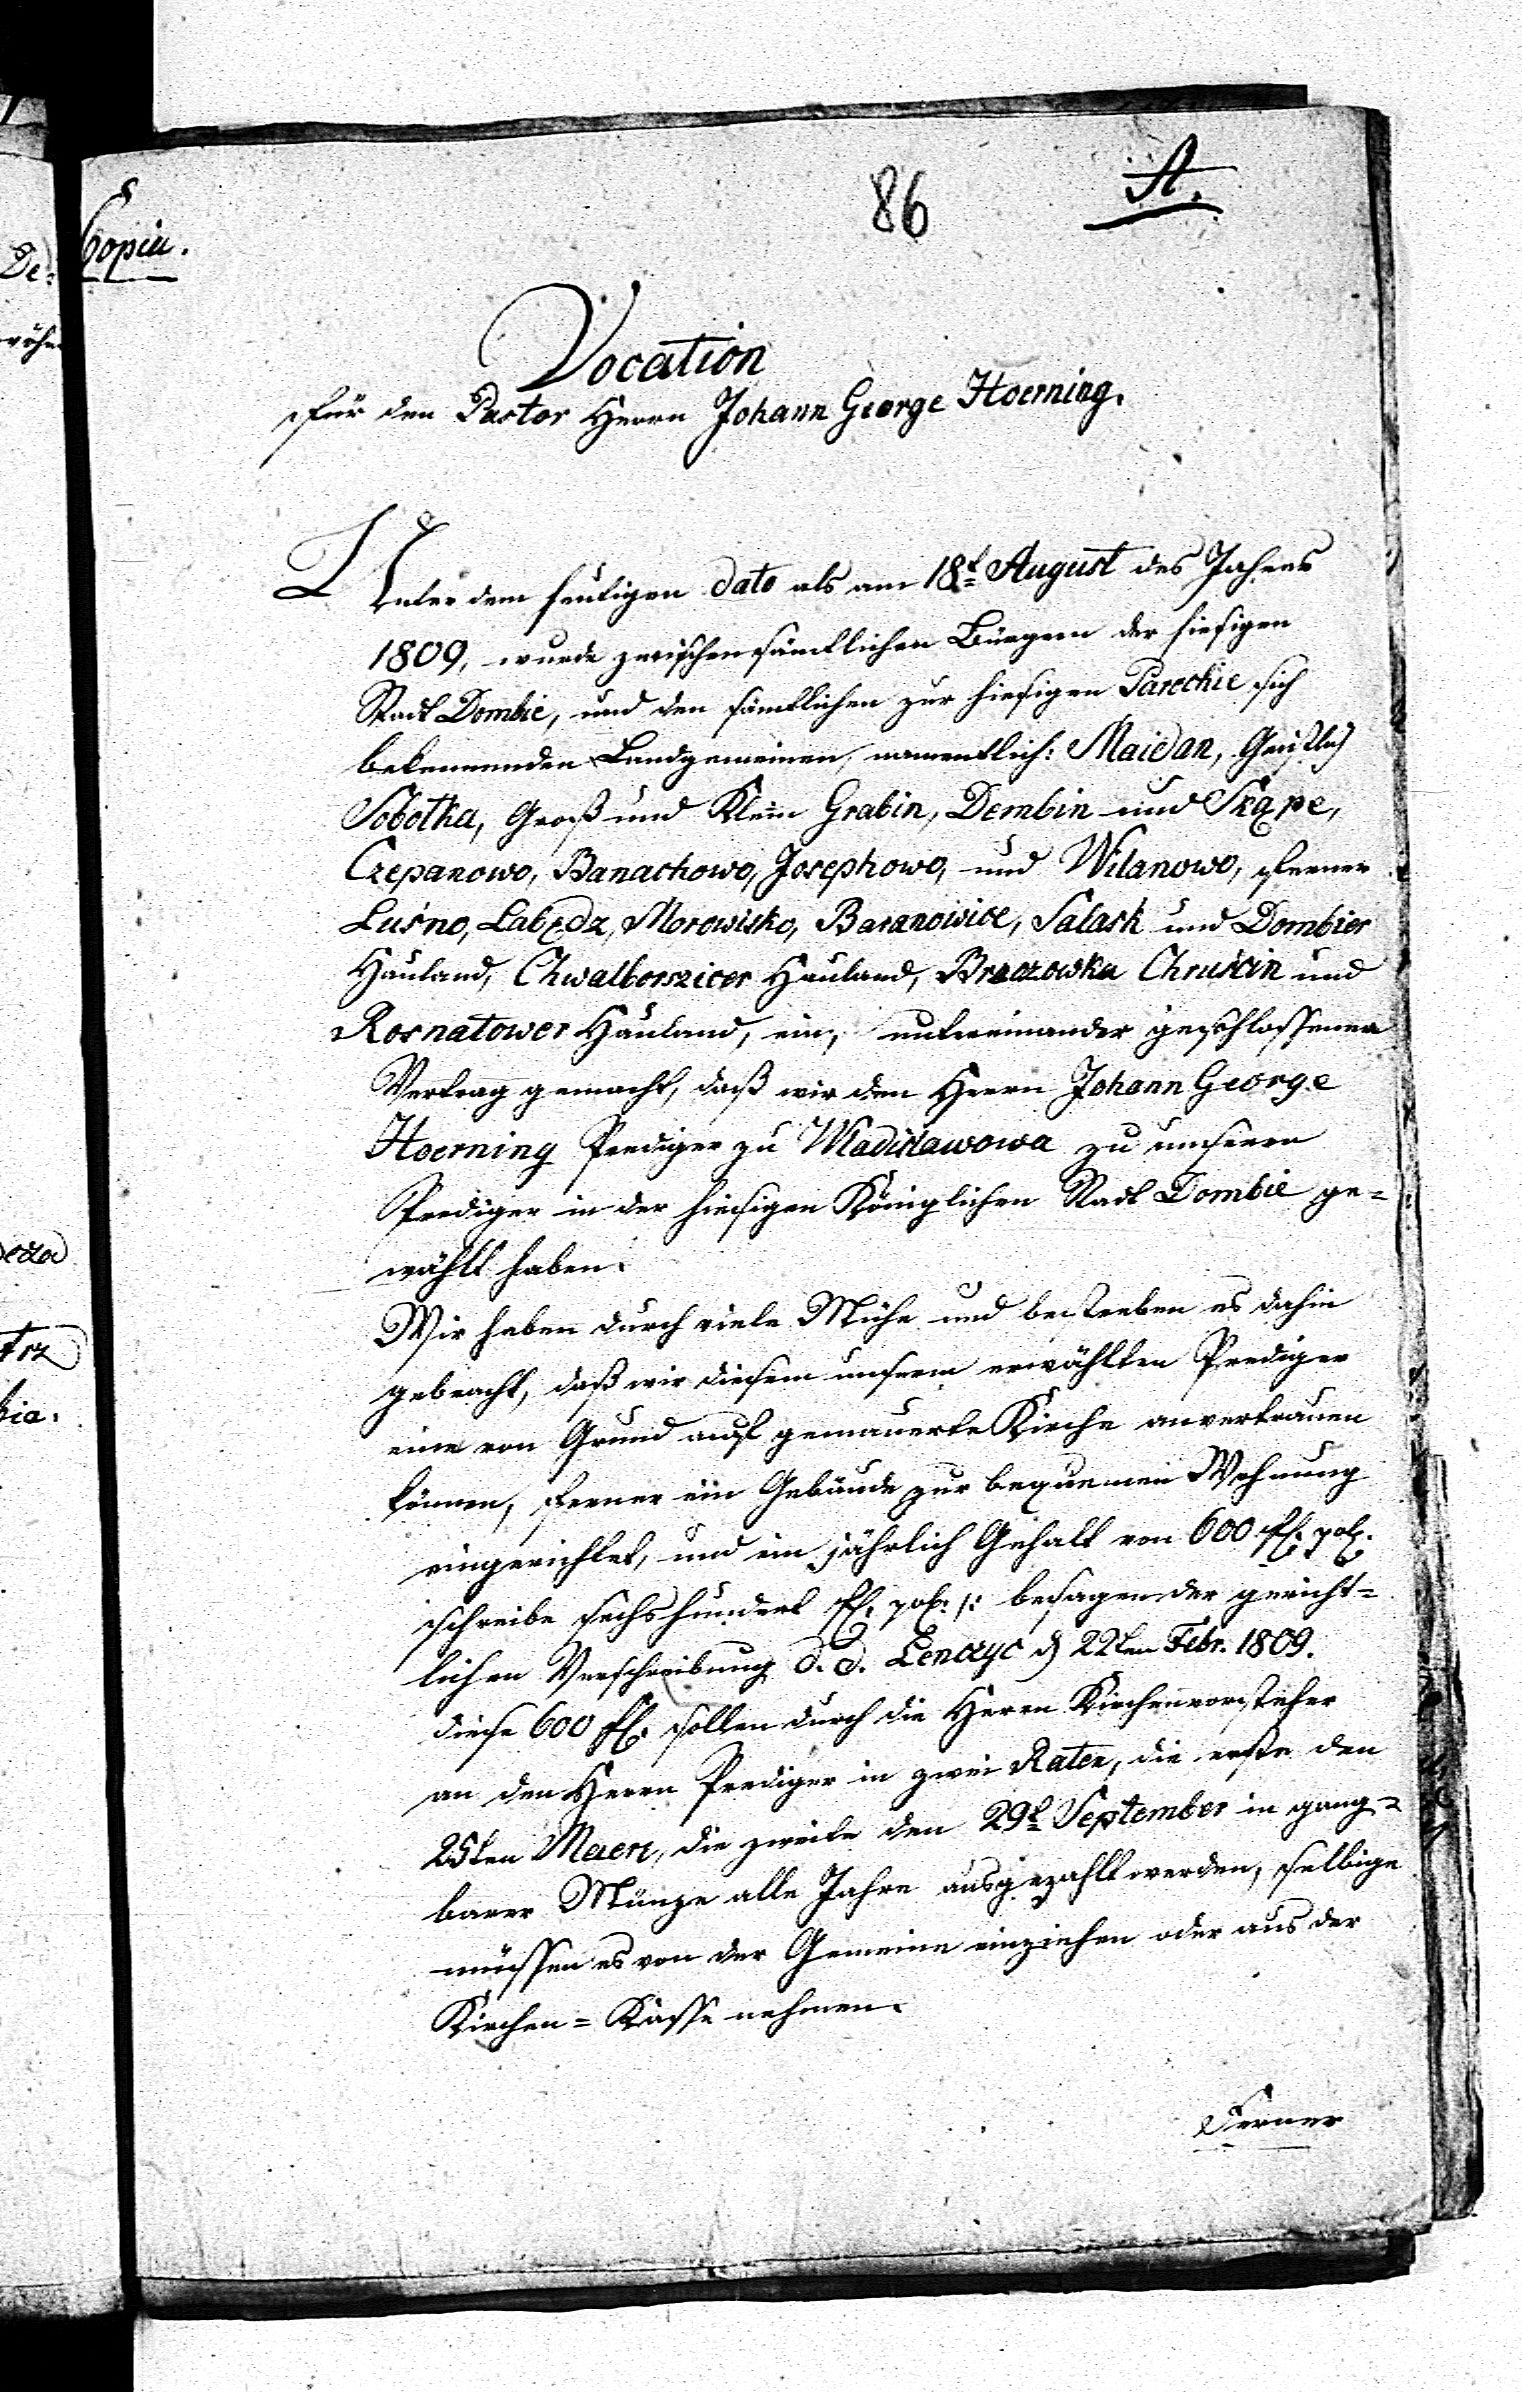 86
A.
Copia.
Vocation
für den Pastor Herrn Johann George Hoerning.
Unter dem heutigen dato als am 18t August des Jahres
1809, wurde zwischen sämtlichen Bürgern der hiesigen
Stadt Dombie, und den sämtlichen zur hiesigen Parochie sich
bekennenden Landgemeinen, namentlich: Maidan, Geistlich
Sobotka, Groß und Klein Grabin, Dembin und Skąpe,
Czepanowo, Banachowo, Josephowo, und Wilanowo, ferner
Luśno, Labędz, Morowisko, Baranowice, Salask und Dombier
Hauland, Chwalborszicer Hauland, Braczowka Chruścin und
Rosnatower Hauland, ein, untereinander geschlossener
Vertrag gemacht, daß wir den Herrn Johann George
Hoerning Prediger zu Wladislawowa zu unserem
Prediger in der hiesigen Königlichen Stadt Dombie ge=
wählt haben.
Wir haben durch viele Mühe und bestreben es dahin
gebracht, daß wir diesem unserm erwählten Prediger
eine von Grund auf gemauerte Kirche anvertrauen
können, ferner ein Gebäude zur bequemen Wohnung
eingerichtet, und ein jährlich Gehalt von 600 fl. pol.
schreibe sechshundert fl. pol. /: besagen der gericht=
lichen Verschreibung d. d. Lenczyc d 22ten Febr. 1809.
diese 600 fl. sollen durch die Herrn Kirchenvorsteher
an den Herrn Prediger in zwei Raten, die erste den
25ten Maerz, die zweite den 29t September in gang=
barer Münze alle Jahre ausgezahlt werden, selbige
müssen es von der Gemeine einziehen oder aus der
Kirchen=Kasse nehmen.
Ferner